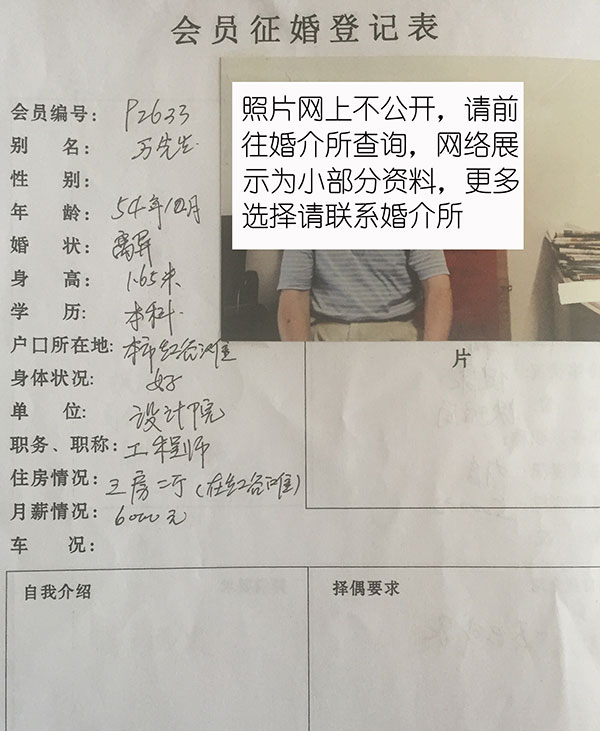 会员征婚登记表
照片网上不公开，请前
往婚介所查询，网络展
示为小部分资料，更多
选择请联系婚介所
会员编号: P2633
别 名: 万先生
性 别:
年 龄: 54年12月
婚 状: 离异
身 高: 1.65米
学 历: 本科
户口所在地: 本市红谷滩
身体状况: 好
单 位: 设计院
职务、职称: 工程师
住房情况: 三房二厅(在红谷滩)
月薪情况: 6000元
车 况:
片
自我介绍
择偶要求